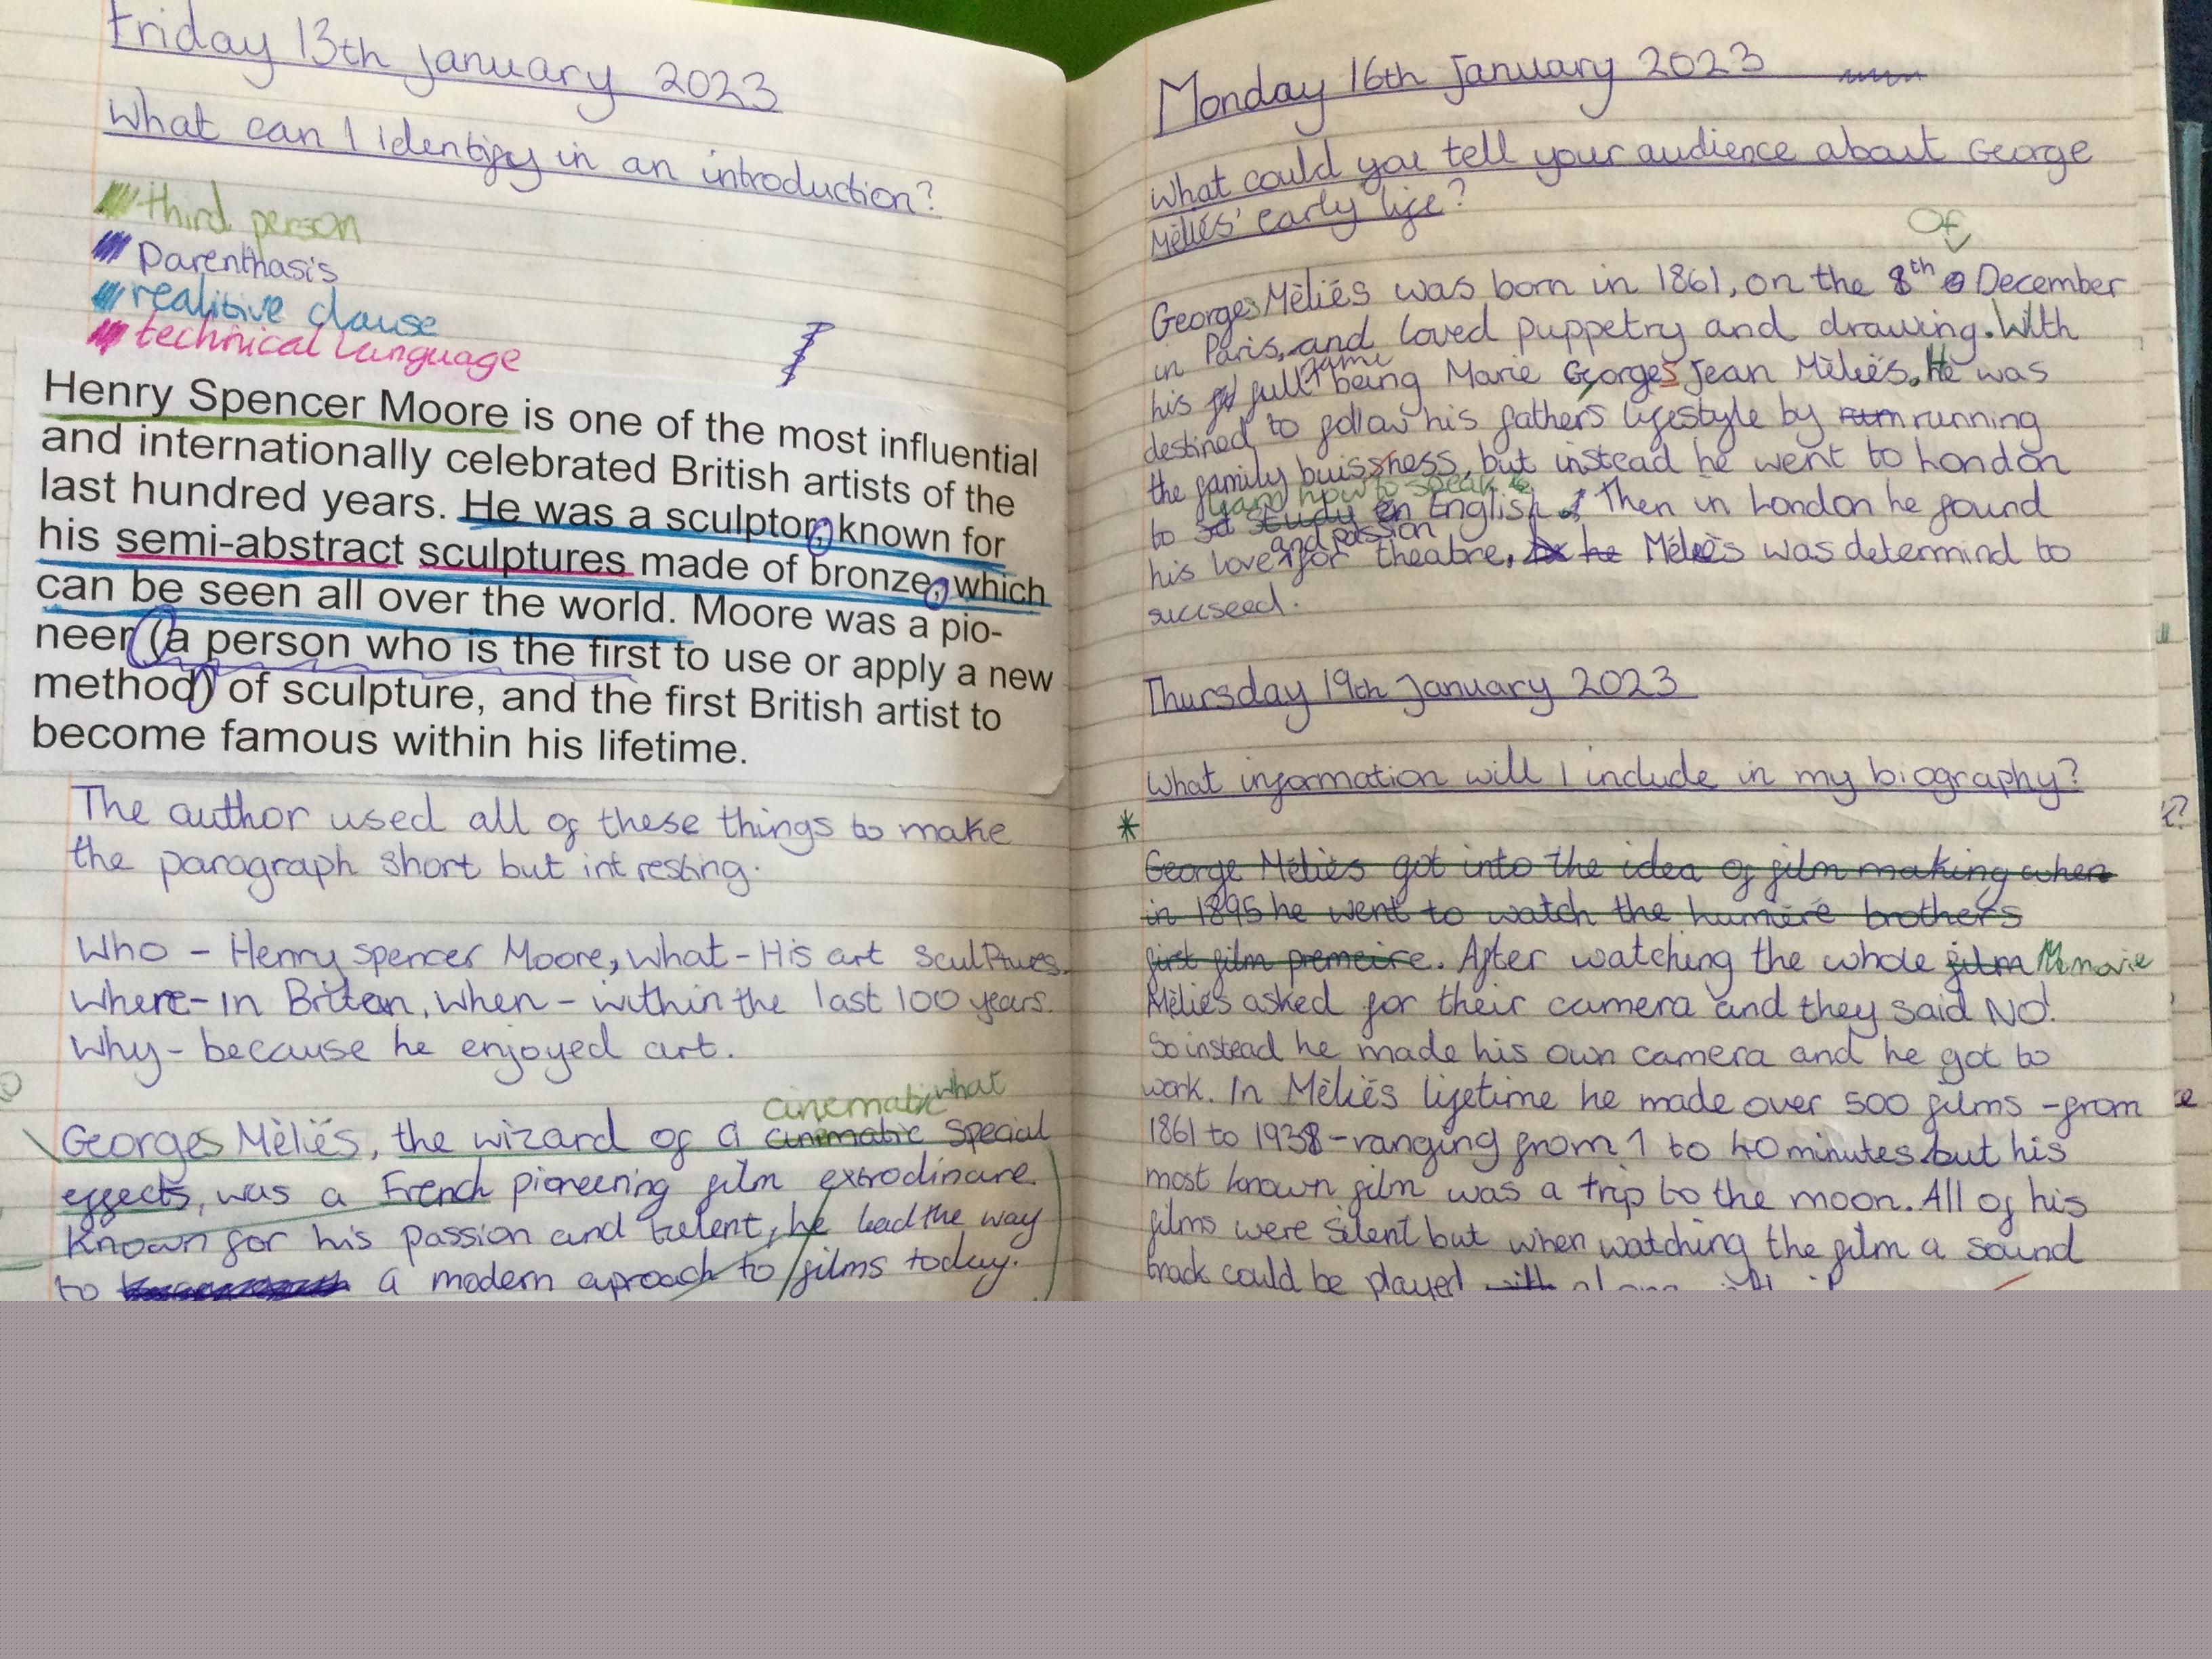 Friday 13th January 2023
What can I identify in an introduction?
third person
Parenthasis
realitive clause
technical language
Henry Spencer Moore is one of the most influential
and internationally celebrated British artists of the
last hundred years. He was a sculptor, known for
his semi-abstract sculptures made of bronze, which
can be seen all over the world. Moore was a pio-
neer (a person who is the first to use or apply a new
method) of sculpture, and the first British artist to
become famous within his lifetime.
The author used all of these things to make
the paragraph short but intresting.
Who - Henry Spencer Moore, what - His art sculptures.
Where - In Britan, when - within the last 100 years.
Why - because he enjoyed art.
cinematic what
Georges Mèliés, the wizard of a cinematic special
effects, was a French pioneering film extrodinare.
Known for his passion and talent, he lead the way
to a modern aproach to films today.
Monday 16th January 2023
What could you tell your audience about George
Mèliés' early life?
Of
Georges Mèliés was born in 1861, on the 8th December
in Paris, and loved puppetry and drawing. With
name
his full being Marie Georges Jean Mèliés. He was
destined to follow his fathers lifestyle by running
the family buissness, but instead he went to London
learn how to speak
to study English. Then in London he found
and passion
his love for theatre, he Mèliés was determind to
sucseed.
Thursday 19th January 2023
What information will I include in my biography?
*
George Mèliés got into the idea of film making when
in 1895 he went to watch the lumière brothers
first film premeire. After watching the whole film movie
Mèliés asked for their camera and they said NO!
So instead he made his own camera and he got to
work. In Mèliés lifetime he made over 500 films - from
1861 to 1938 - ranging from 1 to 40 minutes but his
most known film was a trip to the moon. All of his
films were silent but when watching the film a sound
track could be played with along